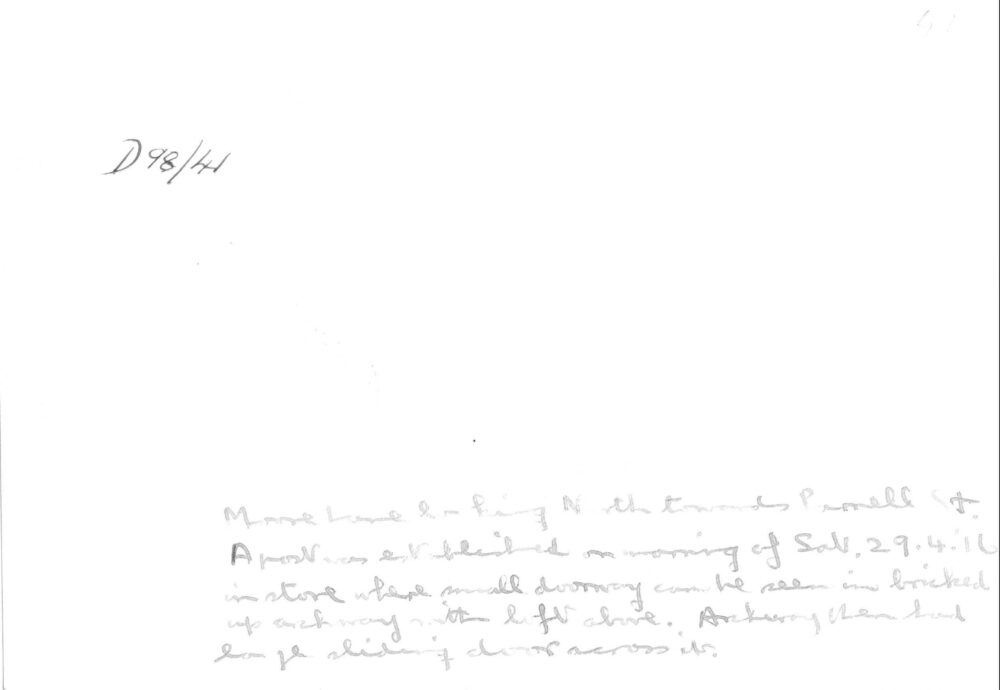 41
D98/41
Moore Lane looking North towards Parnell St.
A post was established on morning of Sat. 29.4.'16
in store where small doorway can be seen in bricked
up archway with loft above. Archway then had
large sliding door across it.